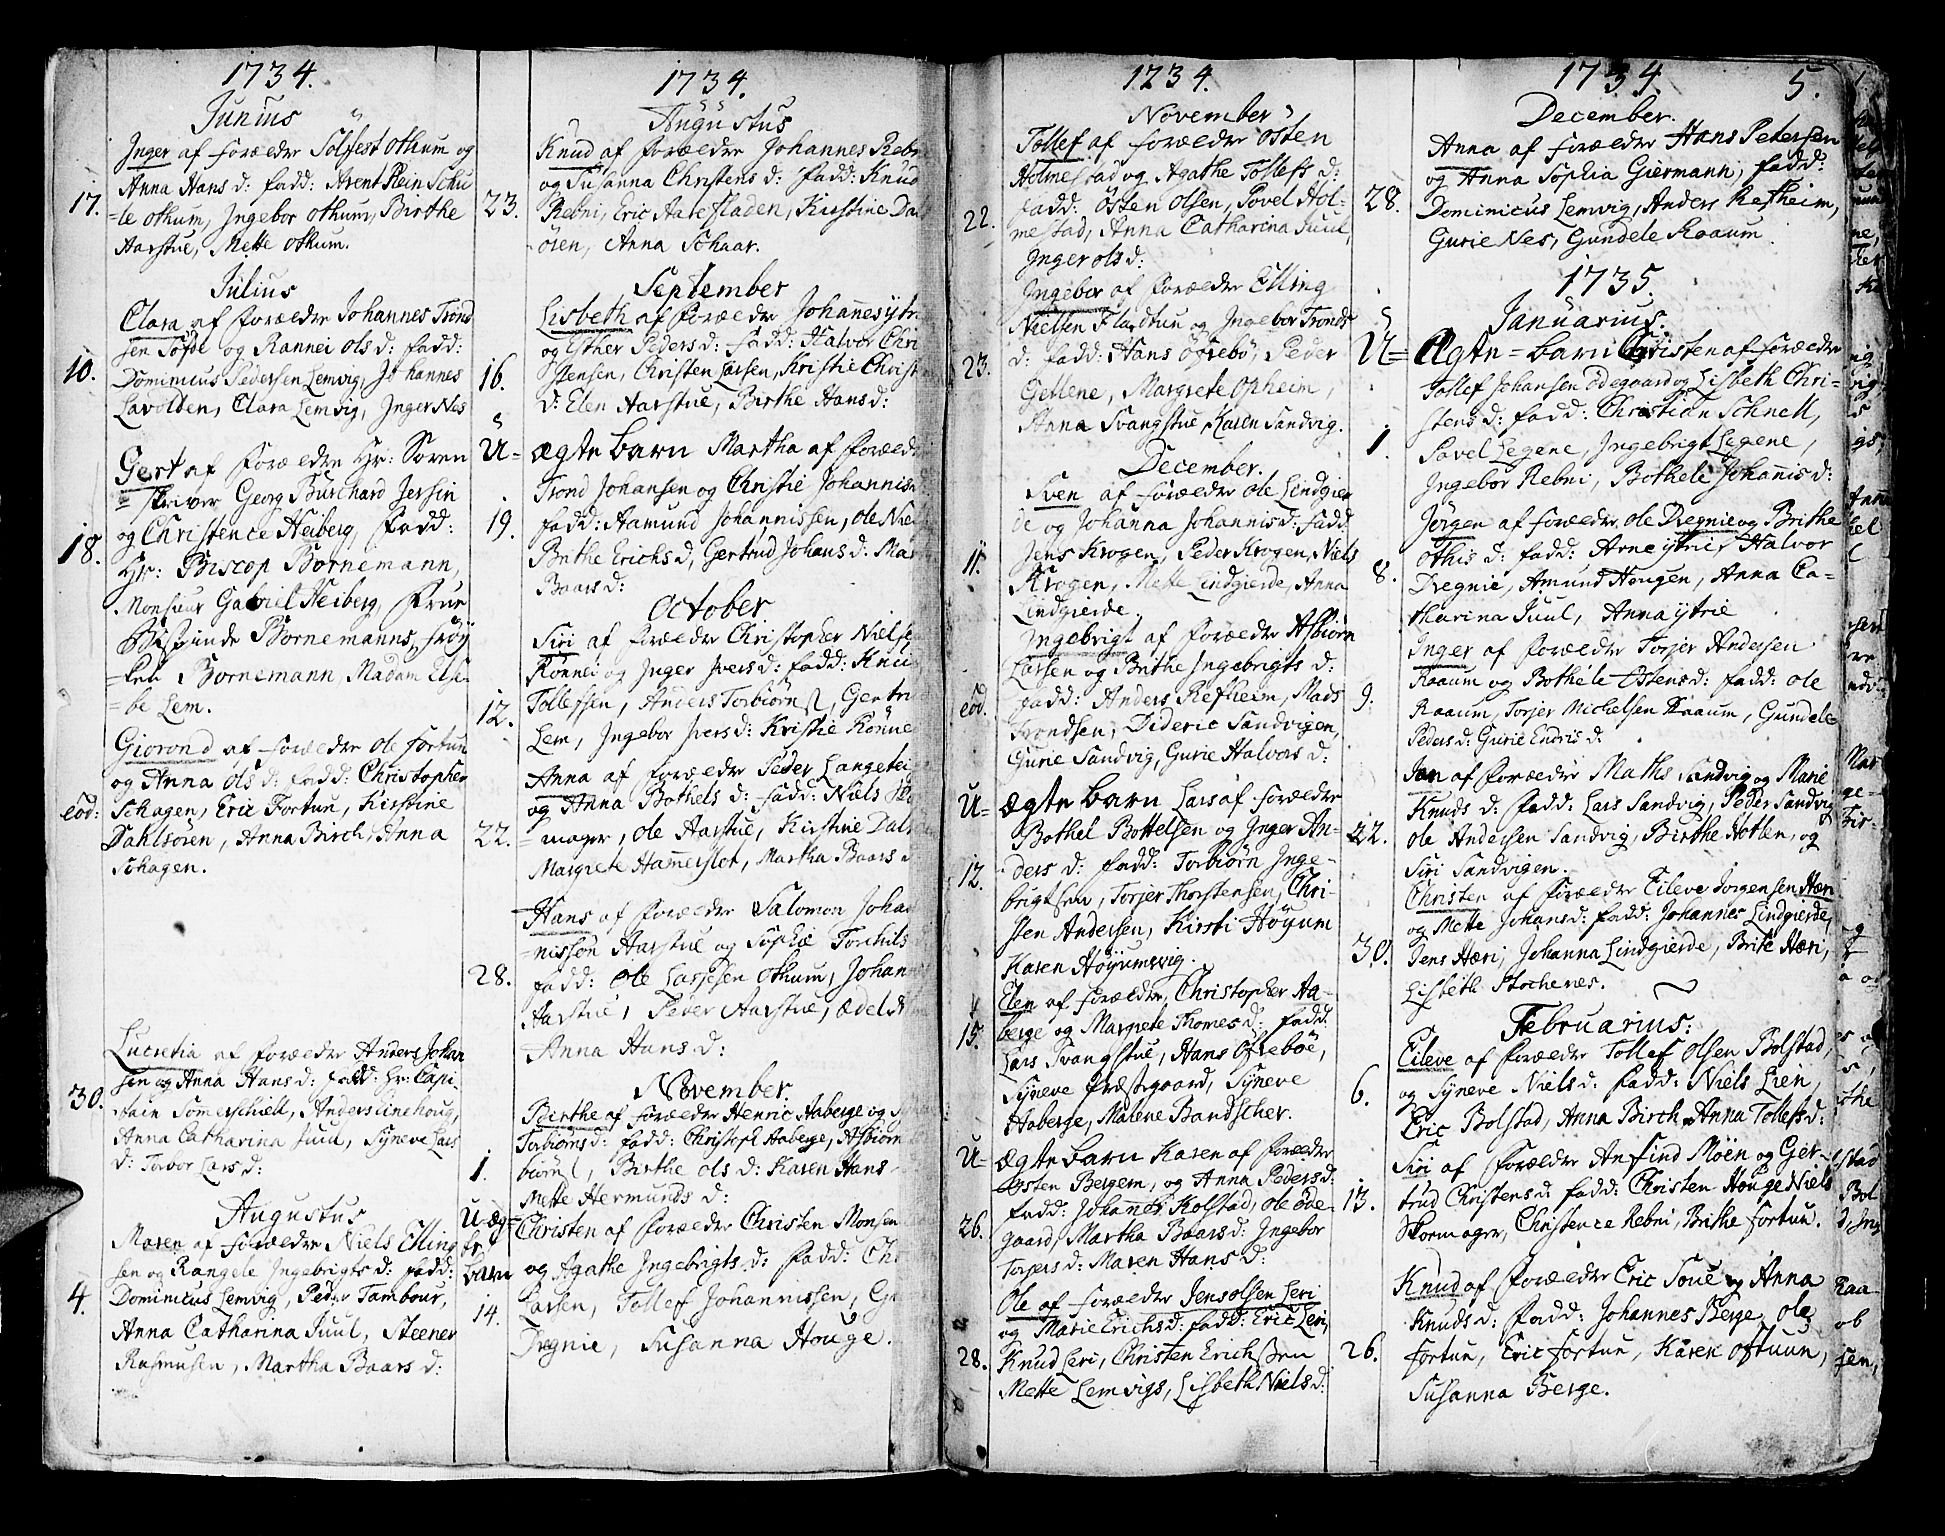 1734.
Junius
Inger af foreldre Solfest Othum og
Anna Hans d: fadd: Arent Rein Schu
17.
=le Othum, Ingebor Othum, Birthe
Aarstue, Mette Othum.
Julius
Clara af foreldre Johannes Trond
sen Sofde og Rannei Ols d: fadd:
10.
Dominicus Pedersen Lemvig, Johannes
Lavolden, Clara Lemvig, Inger Nes
Gert af foreldre Hr: Soren
skriver Georg Burchard Jersin
og Christence Heiberg, fadd:
18.
Hr: Biscop Bornemann,
Monsieur Gabriel Heiberg, Frue
Bornemanns, frøy
=ken Bornemann, Madam Else
=be Lem.
Giorond af foreldre Ole Fortun
og Anna Ols d: fadd: Christopher
eod:
Schagen, Eric Fortun, Kirstine
Dahlsøren, Anna Birch, Anna
Schagen.
Lucretia af foreldre Anders Johan
sen og Anna Hans d: fadd: Hr: Capi
30.
tain Somerschield, Anders Linehoug,
Anna Catharina Juul, Syneve Lars
d: Torbor Lars d:
Augustus
Maren af foreldre Niels Elling
sen og Rangele Ingebrigts d: fadd:
4.
Dominicus Lemvig, Peder Tambour,
Anna Catharina Juul, Steener
Rasmusen, Martha Baars d:
1734.
Augustus
Knud af foreldre Johannes Rebn
og Susanna Christens d: fadd: Knud
23.
Rebni, Eric Aarefladen, Kirstine Dals
øren, Anna Schaar.
September
Lisbeth af foreldre Johanes ytri
og Esther Peders d: fadd: Halvor Chri
16.
stensen, Christen Larsen, Kristie Christ
d: Elen Aarstue, Birthe Hans d:
U=
ægte barn Martha af foreld
Trond Johansen og Christie Johannis
19.
fadd: Aamund Johannissen, Ole Niel
Brithe Erichs d, Gertrud Johans d: Mar
Baars d:
October
Siri af foreldre Christopher Nielse
Rønnei og Inger Ivers d: fadd: Knud
12.
Tollefsen, Anders Torbiørn s, Gertru
Lem, Ingebor Ivers d: Kristie Rønne
Anna af foreldre Peder Langetei
og Anna Bothels d: fadd: Niels Sko
22.
=mager, Ole Aarstue, Kirstine Dals
Margrete Hamerslot, Martha Baars d
Hans af foreldre Salomon Johan
=nissøn Aarstue og Sophie Torchils
28.
fadd: Ole Larsesen Othum, Johann
Aarstue, Siver Aarstue, Ædel A
Anna Hans d:
November.
Berthe af foreldre Henric Aaberge og S
Torbiørns d: fadd: Christoph Aaberge, Asbiørn
1.
biørn s, Birthe Ols d: Karen Hans
Mette Hermunds d:
U-æg=
te
barn
Christen af foreldre Christen Monsen
og Agathe Ingebrigts d: fadd: Ch
14.
Larsen, Tollef Johannissen, G
Dregnie, Susanna Houge.
1734.
November
Tollef af foreldre Østen
Holmestad og Agathe Tollefs d:
22.
fadd: Østen Olsen, Povel Hol-
mestad, Anna Catharina Juul,
Inger Ols d:
Ingebor af foreldre Elling
Nielsen Flaadtun og Ingebor Tronds
23.
d: fadd: Hans Øfrebø, Peder
Getlene, Margrete Opheim,
Anna Svangstue, Karen Sandvig.
December.
Sven af foreldre Ole Lindgier
de og Johanna Johannis d: fadd
11.
Jens Krogen, Peder Krogen, Niels
Krogen, Mette Lindgierde, Anna
Lindgierde.
Ingebrigt af foreldre Asbiørn
Larsen og Brithe Ingebrigts d:
eod.
fadd: Anders Refheim, Mads
Trondsen, Dideric Sandvigen,
Gurie Sandvig, Gurie Halvors d:
U=
ægte barn Lars af foreldre
Bothel Bottelsen og Inger An-
12.
ders d: fadd: Torbiørn Inge-
brigtsen, Torjer Thorstensen, Chri-
sten Andersen, Kirsti Høyum
Karen Høyumsvig.
Elen af foreldre Christopher Aa-
berge og Margrete Thomes d: fadd.
15.
Lars Svangstue, Hans Øfrebøe,
Syneve Præstegaard, Syneve
Haberge, Malene Bandscher.
U=
ægte barn Karen af foreldre
Østen Bergem, og Anna Peders d:
26.
fadd: Johannes Kolstad, Ole Øde-
gaard, Martha Baars d: Ingebor
Torjers d: Maren Hans d:
Ole af foreldre Jens Olsen Leri
og Marie Erichs d: fadd: Eric Leri,
28.
Knud Leri, Christen Erichsen
Mette Lemvigs, Lisbeth Niels d:
1734.
5.
December.
Anna af foreldre Hans Petersen
og Anna Sophia Giermann, fadd:
28.
Dominicus Lemvig, Anders Refheim,
Gurie Nes, Gundele Raaum
1735.
Januarius.
U=
Ægte=barn Christen af foreldre
Tollef Johansen Ødegaard og Lisbeth Chri-
stens d: fadd: Christian Schnell,
1.
Povel Legene, Ingebrigt Legene,
Ingebor Rebni, Bothele Johanis d:
Jørgen af foreldre Ole Dregnie og Brithe
Othis d: fadd: Arne ytrie, Halvor
8.
Dregnie, Amund Hougen, Anna Ca-
tharina Juul, Anna ytrie
Inger af foreldre Torjer Andersen
Raaum og Bothele Østens d: fadd: Ole
9.
Raaum, Torjer Michelsen Raaum, Gundele
Peders d: Gurie Endris d.
Jan af foreldre Maths Sandvig og Marie
Knuds d: fadd: Lars Sandvig, Peder Sandvig
22.
Ole Andersen Sandvig, Birthe Hotlen, og
Siri Sandvigen.
Christen af foreldre Eileve Jorgensen Hæri
og Mette Johans d: fadd: Johannes Lindgierde,
30.
Jens Hæri, Johanna Lindgierde, Brite Hæri,
Lisbeth Stochenes.
Februarius:
Eileve af foreldre Tollef Olsen Bolstad,
og Syneve Niels d: fadd: Niels Lien,
6.
Eric Bolstad, Anna Birch, Anna Tollefs d:
Siri af foreldre Anfind Møen og Ger-
13.
trud Christens d: fadd: Christen Houge, Niels
Skormager, Christence Rebni, Brithe Fortun.
Knud af foreldre Eric Soue og Anna
Knuds d: fadd: Johannes Berge, Ole
26.
Fortun, Eric Fortun, Karen Oftuun,
Susanna Berge.